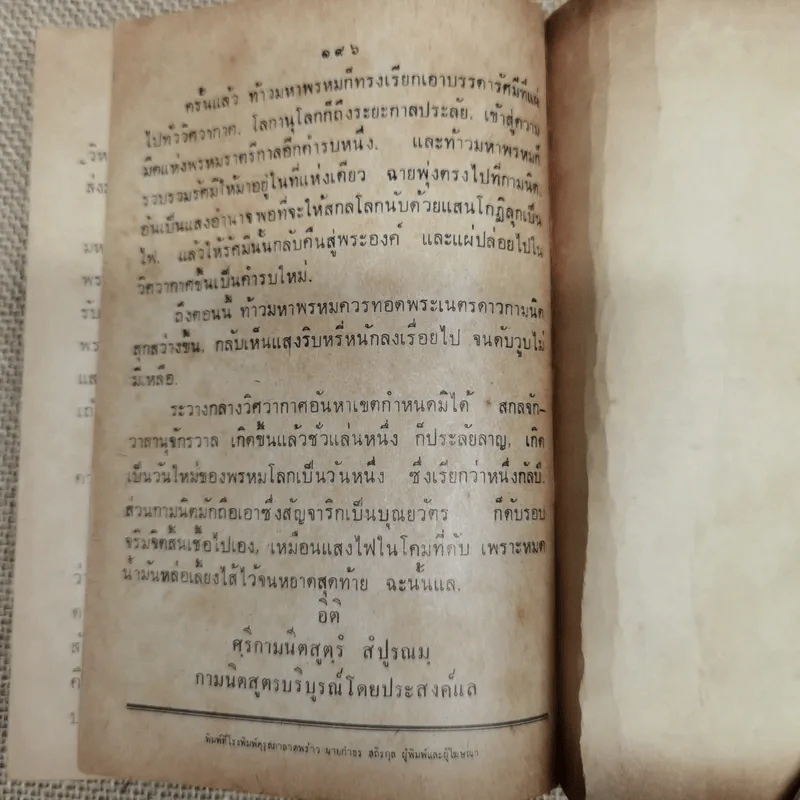 ๑๙๖
ครั้นแล้ว ท้าวมหาพรหมก็ทรงเรียกเอาบรรดารัศมีที่แผ่
ไปทั่ววิศวากาศ, โลกานุโลกก็ถึงระยะกาลประลัย, เข้าสู่ความ
มืดแห่งพรหมราตรีกาลอีกคำรบหนึ่ง. และท้าวมหาพรหมก็
รวบรวมรัศมีให้มาอยู่ในที่แห่งเดียว ฉายพุ่งตรงไปที่กามนิต,
อันเป็นแสงอำนาจพอที่จะให้สกลโลกนับด้วยแสนโกฏิลุกเป็น
ไฟ, แล้วให้รัศมีนั้นกลับคืนสู่พระองค์ และแผ่ปล่อยไปใน
วิศวากาศขึ้นเป็นคำรบใหม่.
ถึงตอนนี้ ท้าวมหาพรหมควรทอดพระเนตรดาวกามนิต
ลุกสว่างขึ้น, กลับเห็นแสงริบหรี่หนักลงเรื่อยไป จนดับวูบไม่
มีเหลือ.
ระวางกลางวิศวากาศอันหาเขตกำหนดมิได้ สกลจัก-
วาลานุจักรวาล เกิดขึ้นแล้วชั่วแล่นหนึ่ง ก็ประลัยลาญ, เกิด
เป็นวันใหม่ของพรหมโลกเป็นวันหนึ่ง ซึ่งเรียกว่าหนึ่งกัลป์.
ส่วนกามนิตมักถือเอาซึ่งสัญจาริกเป็นบุณยวัตร ก็ดับรอบ
จริมจิตสิ้นเชื้อไปเอง, เหมือนแสงไฟในโคมที่ดับ เพราะหมด
น้ำมันหล่อเลี้ยงไส้ไว้จนหยาดสุดท้าย ฉะนั้นแล.
อิติ
ศฺรีกามนีตสูตฺรํ สํปูรณมฺ
กามนิตสูตรบริบูรณ์โดยประสงค์แล
พิมพ์ที่โรงพิมพ์คุรุสภาลาดพร้าว นายกำธร สถิรกุล ผู้พิมพ์และผู้โฆษณา